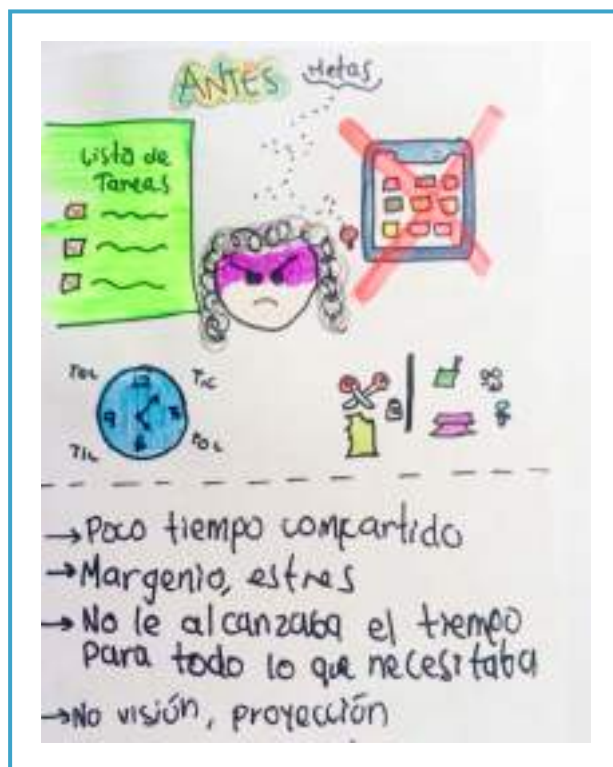 ANTES
Metas
Lista de
Tareas
TOC TIC
TIC TOC
→ Poco tiempo compartido
→ Margenio, estres
→ No le alcanzaba el tiempo
para todo lo que necesitaba
→ No visión, proyección